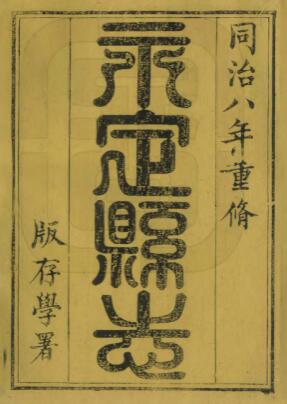 同治八年重脩
永定縣志
版存學署